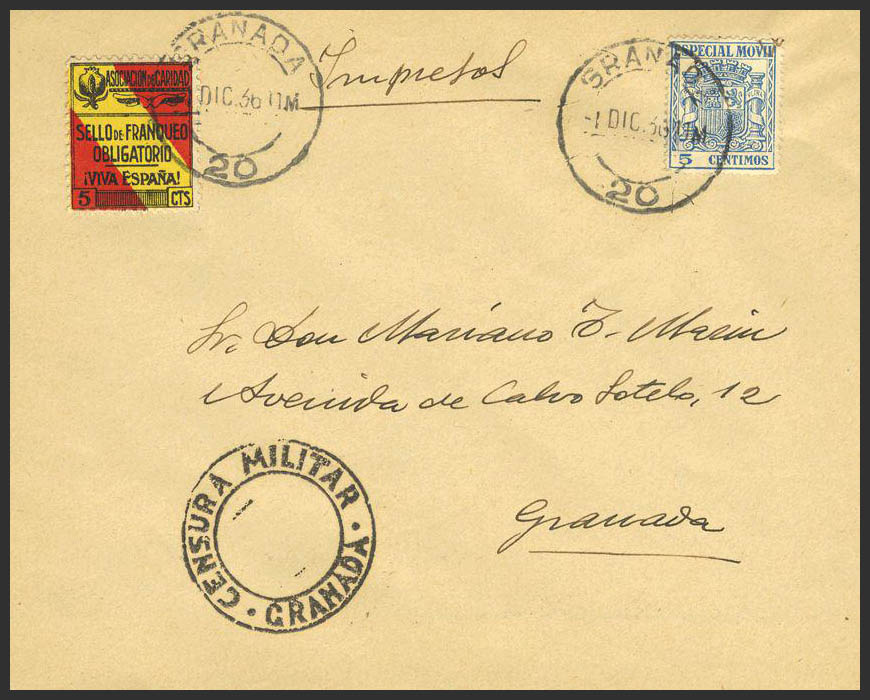 GRANADA
DIC.36 11M
20
Impresos
GRANADA
-1 DIC.36 11M
20
ASOCIACION DE CARIDAD
SELLO DE FRANQUEO
OBLIGATORIO
¡VIVA ESPAÑA!
5 CTS
ESPECIAL MOVIL
5 CENTIMOS
Sr. Don Mariano F. Marin
Avenida de Calvo Sotelo, 12
Granada
CENSURA MILITAR
· GRANADA ·